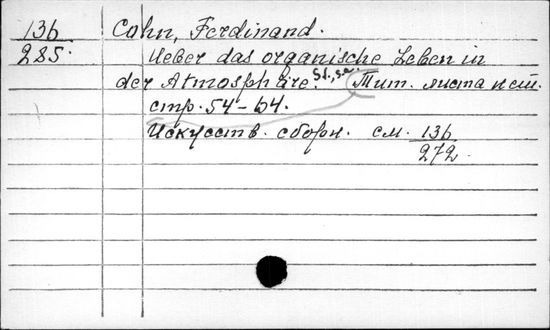 136 Cohn, Ferdinand.
285. Ueber das organische Leben in
der Atmosphäre. S.l., s.a. Тит. листа нет.
стр. 54 - 64.
Искусств. сборн. см. 136
272.